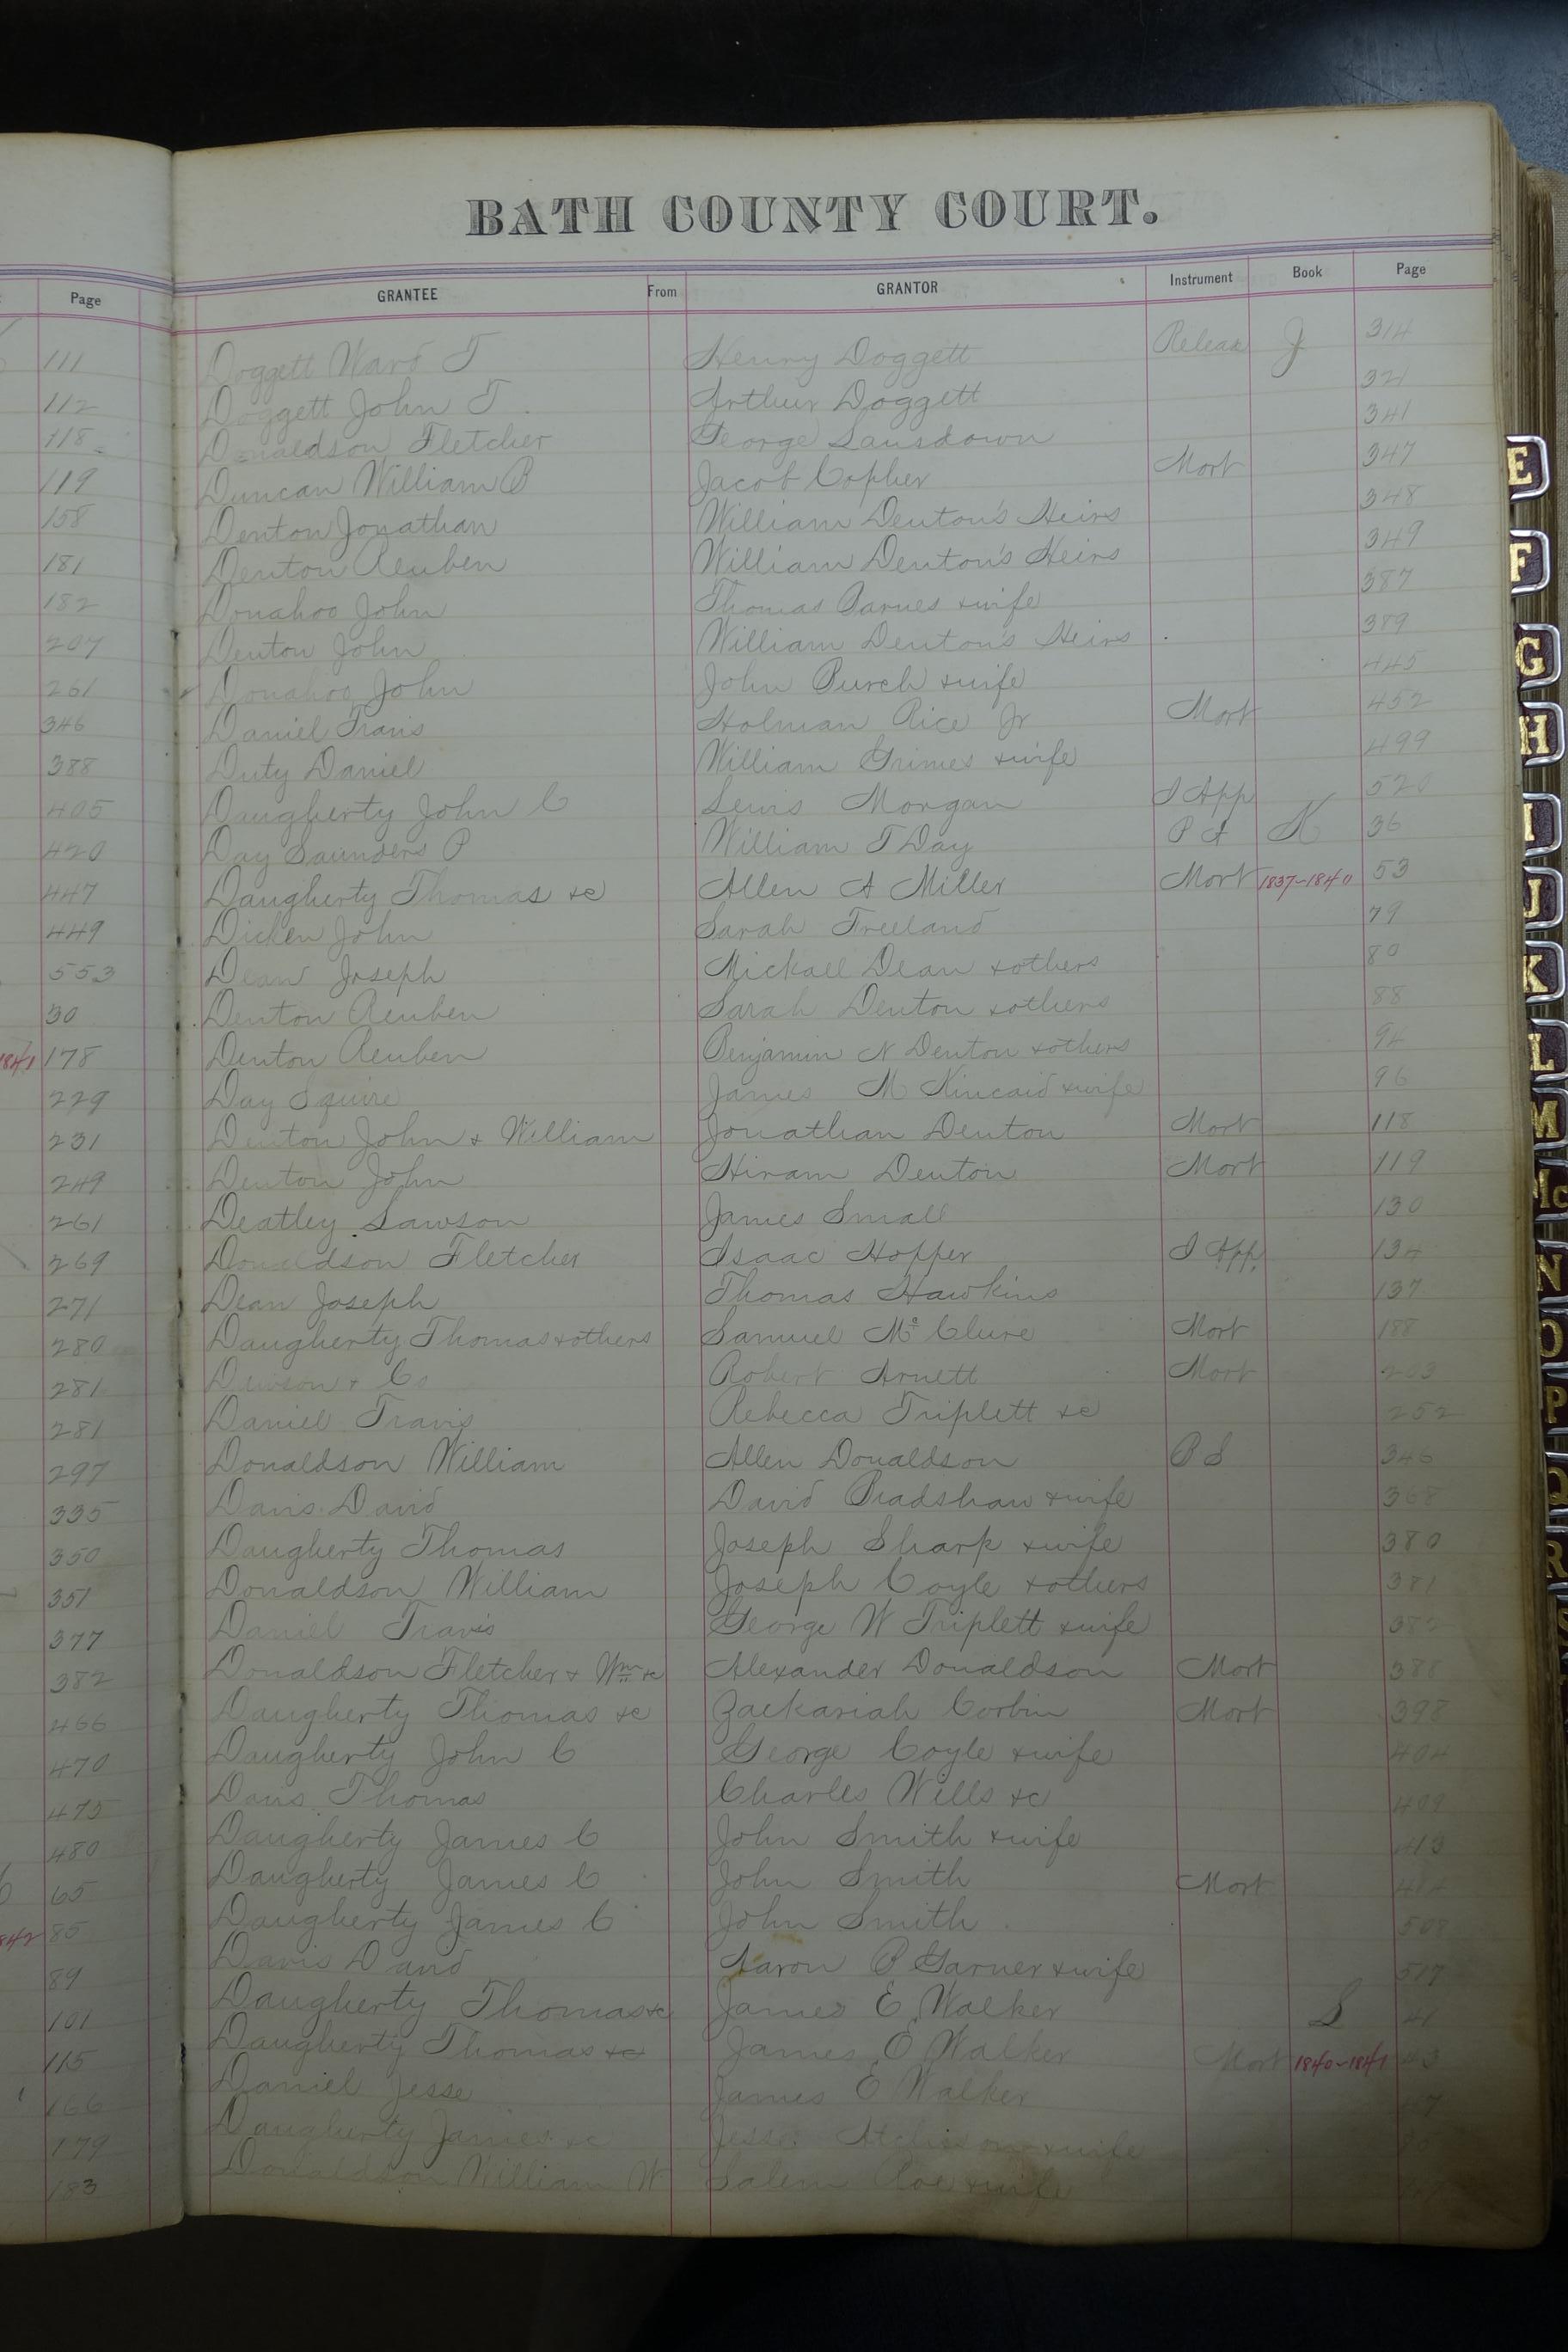 BATH COUNTY COURT.
Page GRANTEE From GRANTOR Instrument Book Page
111 Doggett Ward T Henry Doggett Release J 314
112 Doggett John T. Arthur Doggett 321
118 Donaldson Fletcher George Lansdown 341
119 Duncan William B Jacob Copher Mort 347
158 Denton Jonathan William Denton's Heirs 348
181 Denton Reuben William Denton's Heirs 349
182 Donahoo John Thomas Barnes & wife 387
207 Denton John William Denton's Heirs 389
261 Donahoo John John Burch & wife 445
346 Daniel Travis Holman Rice Jr Mort 452
388 Duty Daniel William Grimes & wife 499
405 Daugherty John C Lewis Morgan I App 520
420 Day Saunders P William T Day P A K 36
447 Daugherty Thomas &c Allen A Miller Mort 1837-1840 53
449 Dicken John Sarah Freeland 79
553 Dean Joseph Mickall Dean & others 80
30 Denton Reuben Sarah Denton & others 88
1841 178 Denton Reuben Benjamin N Denton & others 94
229 Day Squire James M Kincaid & wife 96
231 Denton John & William Jonathan Denton Mort 118
249 Denton John Hiram Denton Mort 119
261 Deatley Lawson James Small 130
269 Donaldson Fletcher Isaac Hopper I App. 134
271 Dean Joseph Thomas Hawkins 137
280 Daugherty Thomas & others Samuel Mc Clure Mort 188
281 & Co Robert Arnett Mort 203
281 Daniel Travis Rebecca Triplett &c 252
297 Donaldson William Allen Donaldson B S 346
335 Davis David David Bradshaw & wife 368
350 Daugherty Thomas Joseph Sharp & wife 380
351 Donaldson William Joseph Coyle & others 381
377 Daniel Travis George W Triplett & wife 382
382 Donaldson Fletcher & Wm &c Alexander Donaldson Mort 388
466 Daugherty Thomas &c Zackariah Corbin Mort 398
470 Daugherty John C George Coyle & wife 404
475 Davis Thomas Charles Wills &c 409
480 Daugherty James C John Smith & wife 413
65 Daugherty James C John Smith Mort 414
1842 85 Daugherty James C John Smith 508
89 Davis David Aaron B Garner & wife 517
101 Daugherty Thomas &c James E Walker L 41
115 Daugherty Thomas &c James E Walker Mort 1840-1841 43
166 Daniel Jesse James E Walker
179 Daugherty James &c Jesse Atchison & wife
183 Donaldson William W Salem Roe & wife
E
F
G
H
I
J
K
L
M
Mc
N
O
P
Q
R